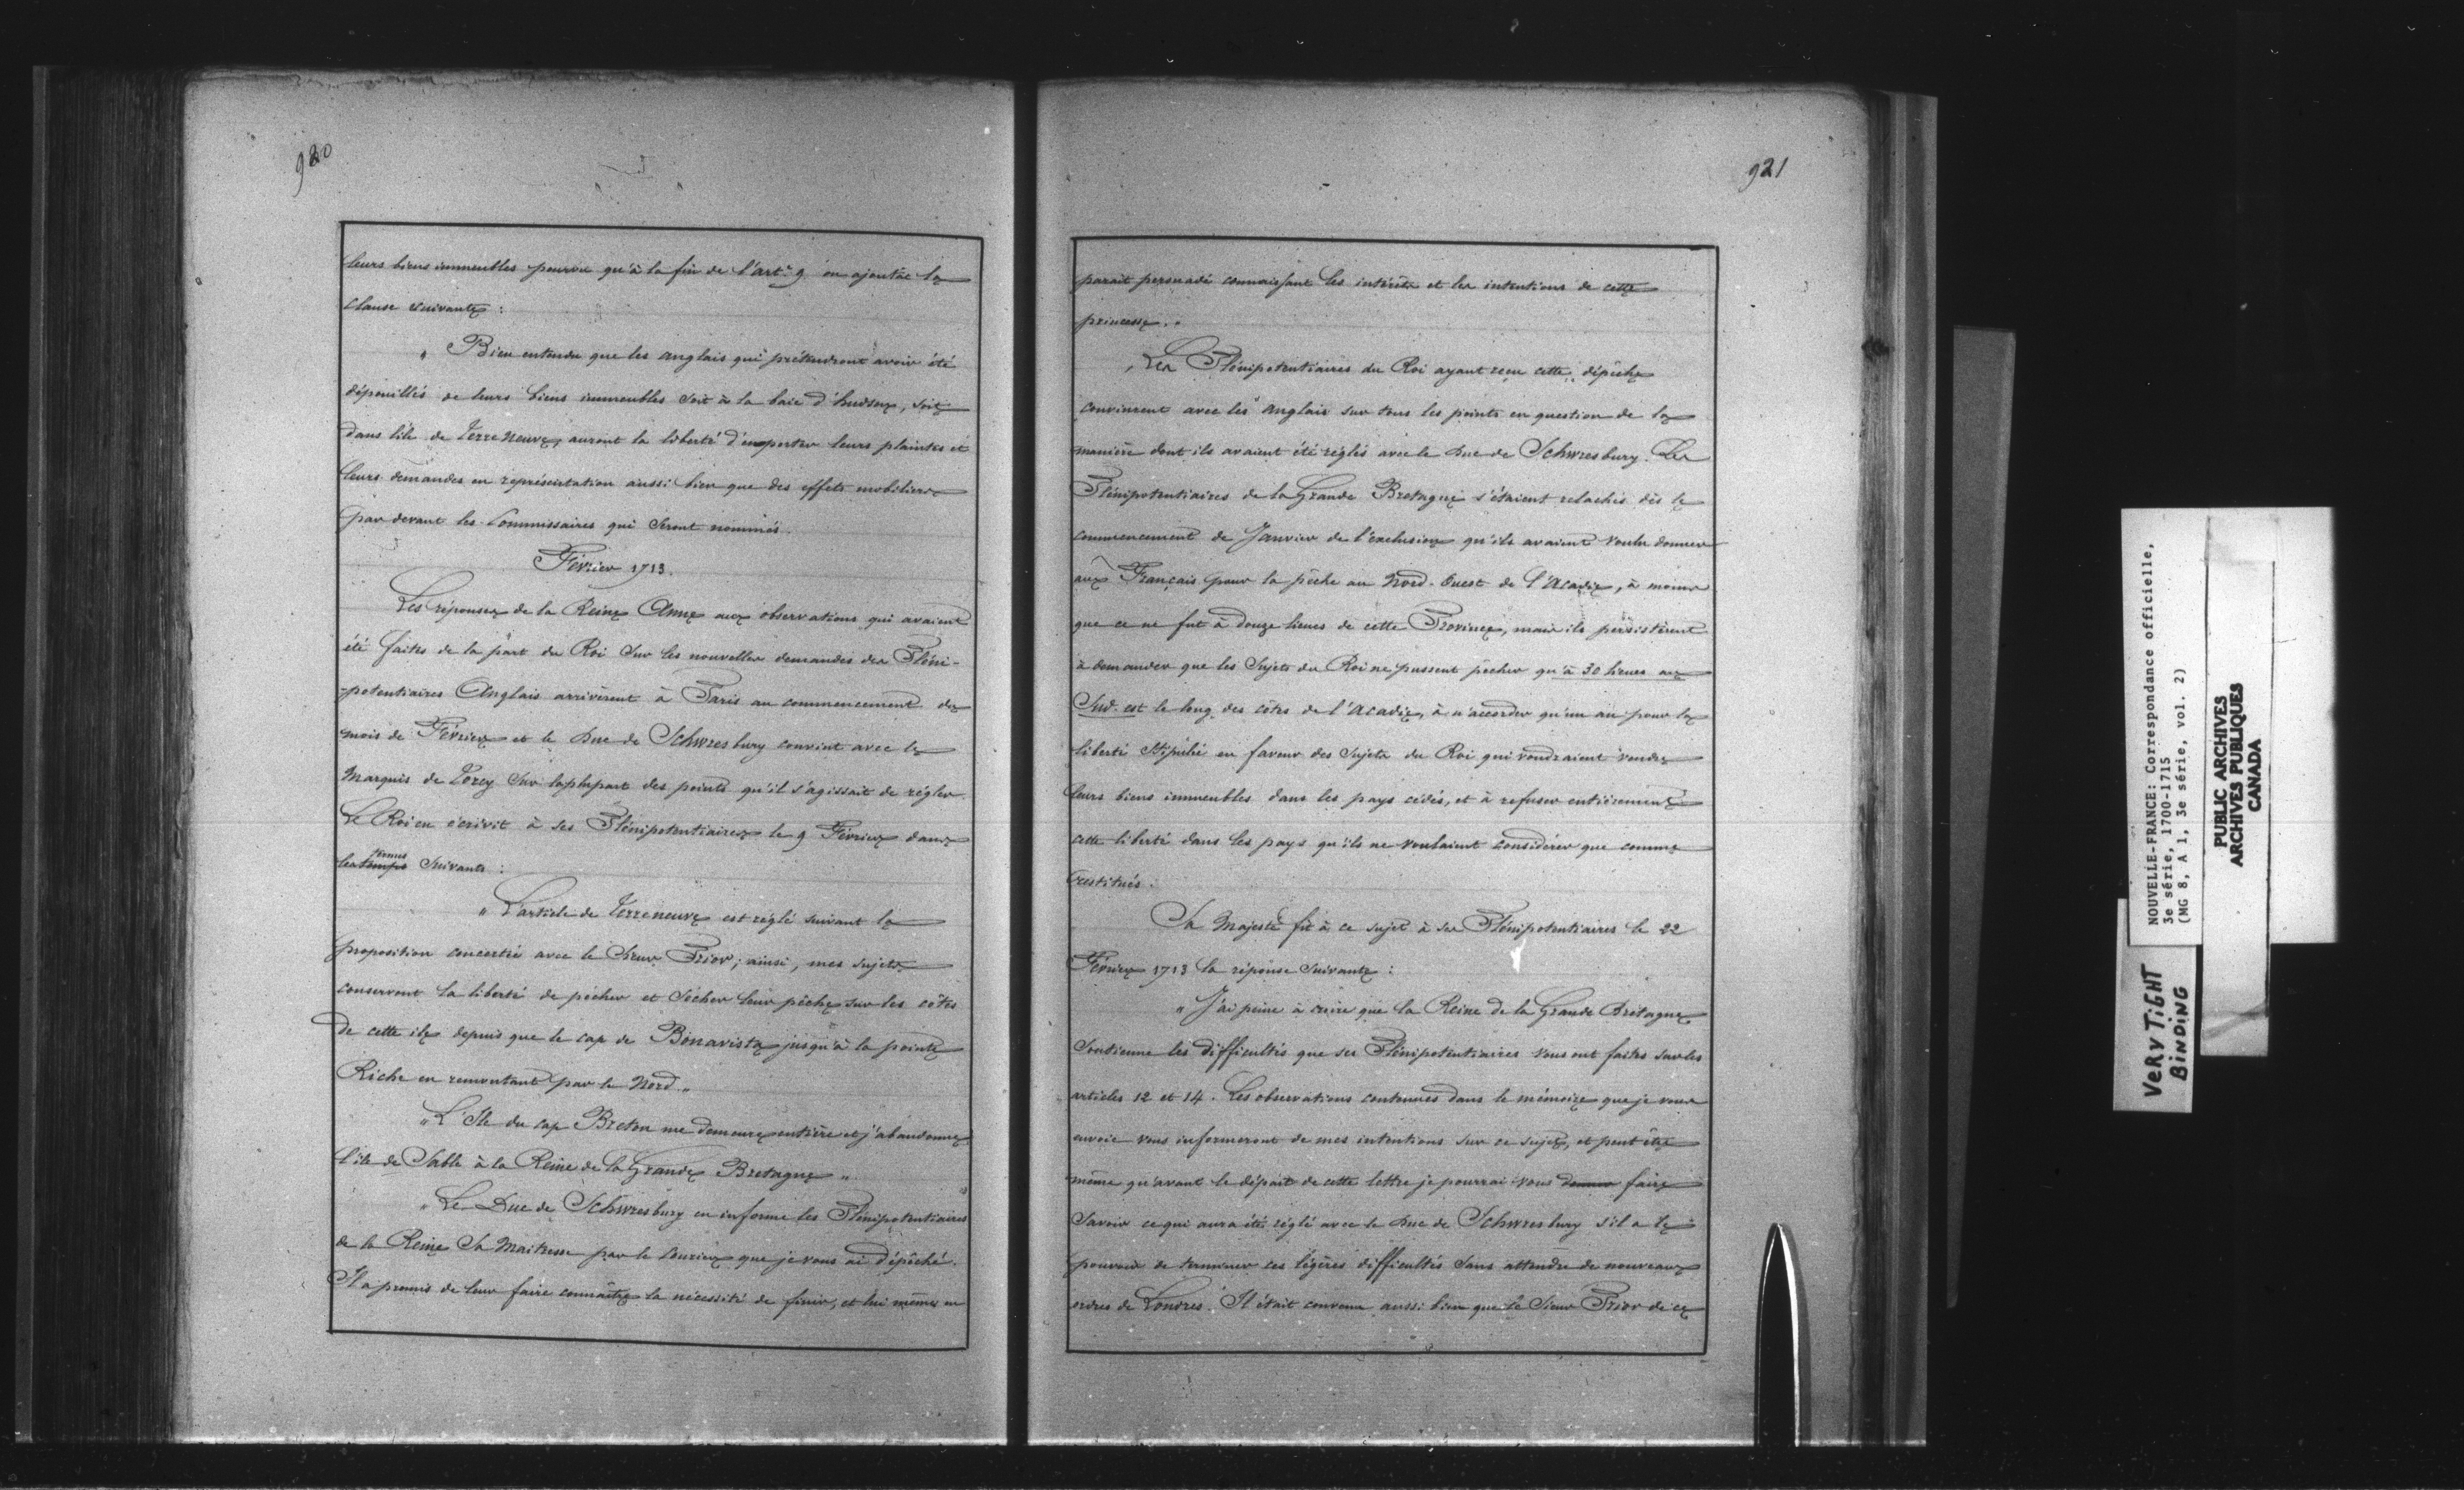 920
leurs biens immeubles pourvu qu'à la fin de l'art. 9 on ajoutât la
clause suivante :
" Bien entendu que les anglais qui prétendront avoir été
dépouillés de leurs biens immeubles soit à la baie d'hudson, soit
dans l'ile de Terre Neuve, auront la liberté d'en porter leurs plaintes et
leurs demandes en représentation aussi bien que des effets mobiliers
par devant les Commissaires qui seront nommés.
Février 1713.
Les réponses de la Reine Anne aux observations qui avaient
été faites de la part du Roi sur les nouvelles demandes des Pléni-
-potentiaires Anglais arrivèrent à Paris au commencement du
mois de Février et le Duc de Schwresbury convint avec le
Marquis de Torcy sur la plupart des points qu'il s'agissait de régler.
Le Roi en écrivit à ses Plénipotentiaires le 9 Février dans
les temps termes suivants :
" L'article de Terreneuve est réglé suivant la
proposition concertée avec le Sieur Prior; ainsi, mes sujets
conservent la liberté de pêcher et sécher leur pêche sur les côtes
de cette ile depuis que le cap de Bonavista jusqu'à la pointe
Riche en remontant par le Nord. "
" L'Ile du cap Breton me demeure entière et j'abandonne
l'ile de Sable à la Reine de la Grande Bretagne "
" Le Duc de Schwresbury en informe les Plénipotentiaires
de la Reine Sa Maitresse par le Courier que je vous ai dépêché.
Il a promis de leur faire connaître la nécessité de finir, et lui même en
921
parait persuadé connaissant les intérêts et les intentions de cette
princesse. "
Les Plénipotentiaires du Roi ayant reçu cette dépêche
convinrent avec les anglais sur tous les points en question de la
manière dont ils avaient été réglés avec le Duc de Schwresbury. Les
Plénipotentiaires de la Grande Bretagne s'étaient relachés dès le
commencement de Janvier de l'exclusion qu'ils avaient voulu donner
aux Français pour la pêche au Nord-Ouest de l'Acadie, à moins
que ce ne fut à douze lieues de cette Province, mais ils persistèrent
à demander que les Sujets du Roi ne pussent pêcher qu'à 30 lieues au
Sud-est le long des côtes de l'Acadie, à n'accorder qu'un an pour la
liberté stipulée en faveur des Sujets du Roi qui voudraient vendre
leurs biens immeubles dans les pays cédés, et à refuser entièrement
cette liberté dans les pays qu'ils ne voulaient considérer que comme
restitués.
Sa Majesté fit à ce sujet à ses Plénipotentiaires le 22
Février 1713 la réponse suivante :
" J'ai peine à croire que la Reine de la Grande Bretagne
soutienne les difficultés que ses Plénipotentiaires vous ont faites sur les
articles 12 et 14. Les observations contenues dans le mémoire que je vous
envoie vous informeront de mes intentions sur ce sujet, et peut être
même qu'avant le départ de cette lettre je pourrai vous donner faire
savoir ce qui aura été réglé avec le Duc de Schwresbury s'il a le
pouvoir de terminer ces légères difficultés sans attendre de nouveaux
ordres de Londres. Il était convenu aussi bien que le Sieur Prior de ce
NOUVELLE-FRANCE: Correspondance officielle,
3e série, 1700-1715
(MG 8, A 1, 3e série, vol. 2)
PUBLIC ARCHIVES
ARCHIVES PUBLIQUES
CANADA
VERY TIGHT
BINDING